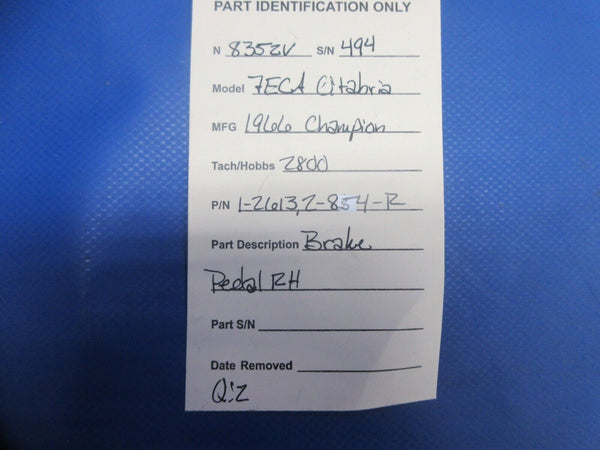 PART IDENTIFICATION ONLY
N 8352V S/N 494
Model 7ECA Citabria
MFG 1966 Champion
Tach/Hobbs 2800
P/N 1-2613, 2-854-R
Part Description Brake
Pedal RH
Part S/N
Date Removed
Q:2